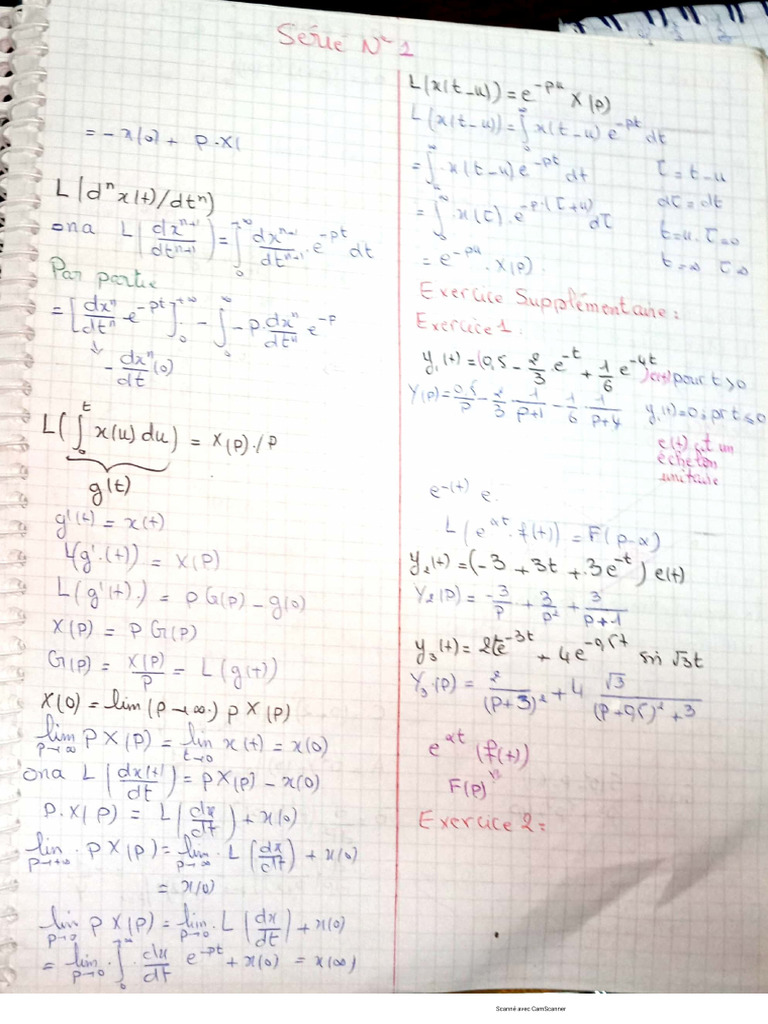 Série N° 1
= - x(0) + p.X(
L(dⁿx(t)/dtⁿ)
ona L(dxⁿ⁺¹/dtⁿ⁺¹) = ∫₀^+∞ dxⁿ⁺¹/dtⁿ⁺¹ . e^-pt dt
Par partie
= [dxⁿ/dtⁿ e^-pt]₀^+∞ - ∫₀^∞ -p. dxⁿ/dtⁿ e^-p
↓
- dxⁿ/dt (0)
L(∫₀^t x(u) du) = X(p)./p
g(t)
g'(t) = x(t)
L(g'.(t)) = X(p)
L(g'(t).) = p G(p) - g(0)
X(p) = p G(p)
G(p) = X(p)/p = L(g(t))
X(0) = lim (p→∞.) p X(p)
lim p→∞ p X(p) = lim t→0 x(t) = x(0)
ona L(dx(t)/dt) = p X(p) - x(0)
p.X(p) = L(dx/dt) + x(0)
lim p→+∞ . p X(p) = lim p→∞ . L(dx/dt) + x(0)
= x(0)
lim p→0 p X(p) = lim p→0 . L(dx/dt) + x(0)
= lim p→0 . ∫₀^+∞ dx/dt e^-pt + x(0) = x(∞)
L(x(t-u)) = e^-pu X(p)
L(x(t-u)) = ∫₀^∞ x(t-u) e^-pt dt
= ∫ᵤ^∞ . x(t-u) e^-pt dt τ = t-u
= ∫₀^∞ . x(τ) . e^-p.(τ+u) dτ dτ = dt
t=u. τ=0
= e^-pu . X(p) . t=∞ τ ∞
Exercice Supplémentaire :
Exercice 1.
y₁(t) = (0,5 - 2/3 e^-t + 1/6 e^-4t) e(t) pour t>0
Y(p) = 0,5/p - 2/3 . 1/p+1 - 1/6 . 1/p+4 y₁(t)=0 , pr t≤0
e(t) est un
échelon
unitaire
e^-(t) e.
L(e^αt . f(t)) = F(p-α)
y₂(t) = (-3 + 3t + .3e^-t) e(t)
Y₂(p) = -3/p + 3/p² + 3/p+1
y₃(t) = 2te^-3t + 4e^-0,5t sin √3t
Y₃.(p) = 2/(p+3)² + 4 √3/(p+0,5)²+3
e^αt (f(t))
F(p)
Exercice 2 =
Scanné avec CamScanner